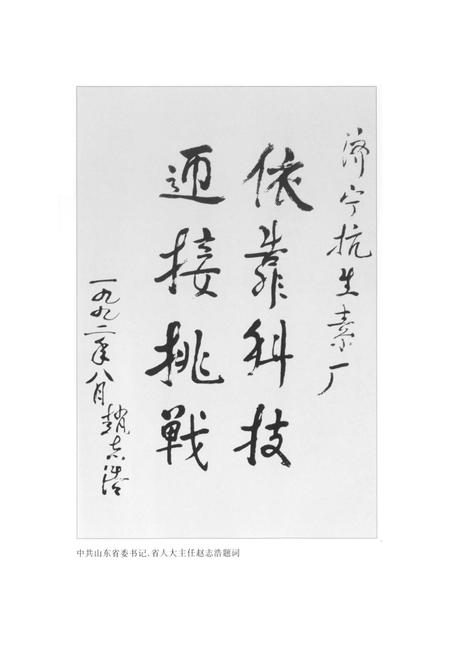 济宁抗生素厂
依靠科技
迊接挑戦
一九九二年八月 趙志浩
中共山东省委书记、省人大主任赵志浩题词